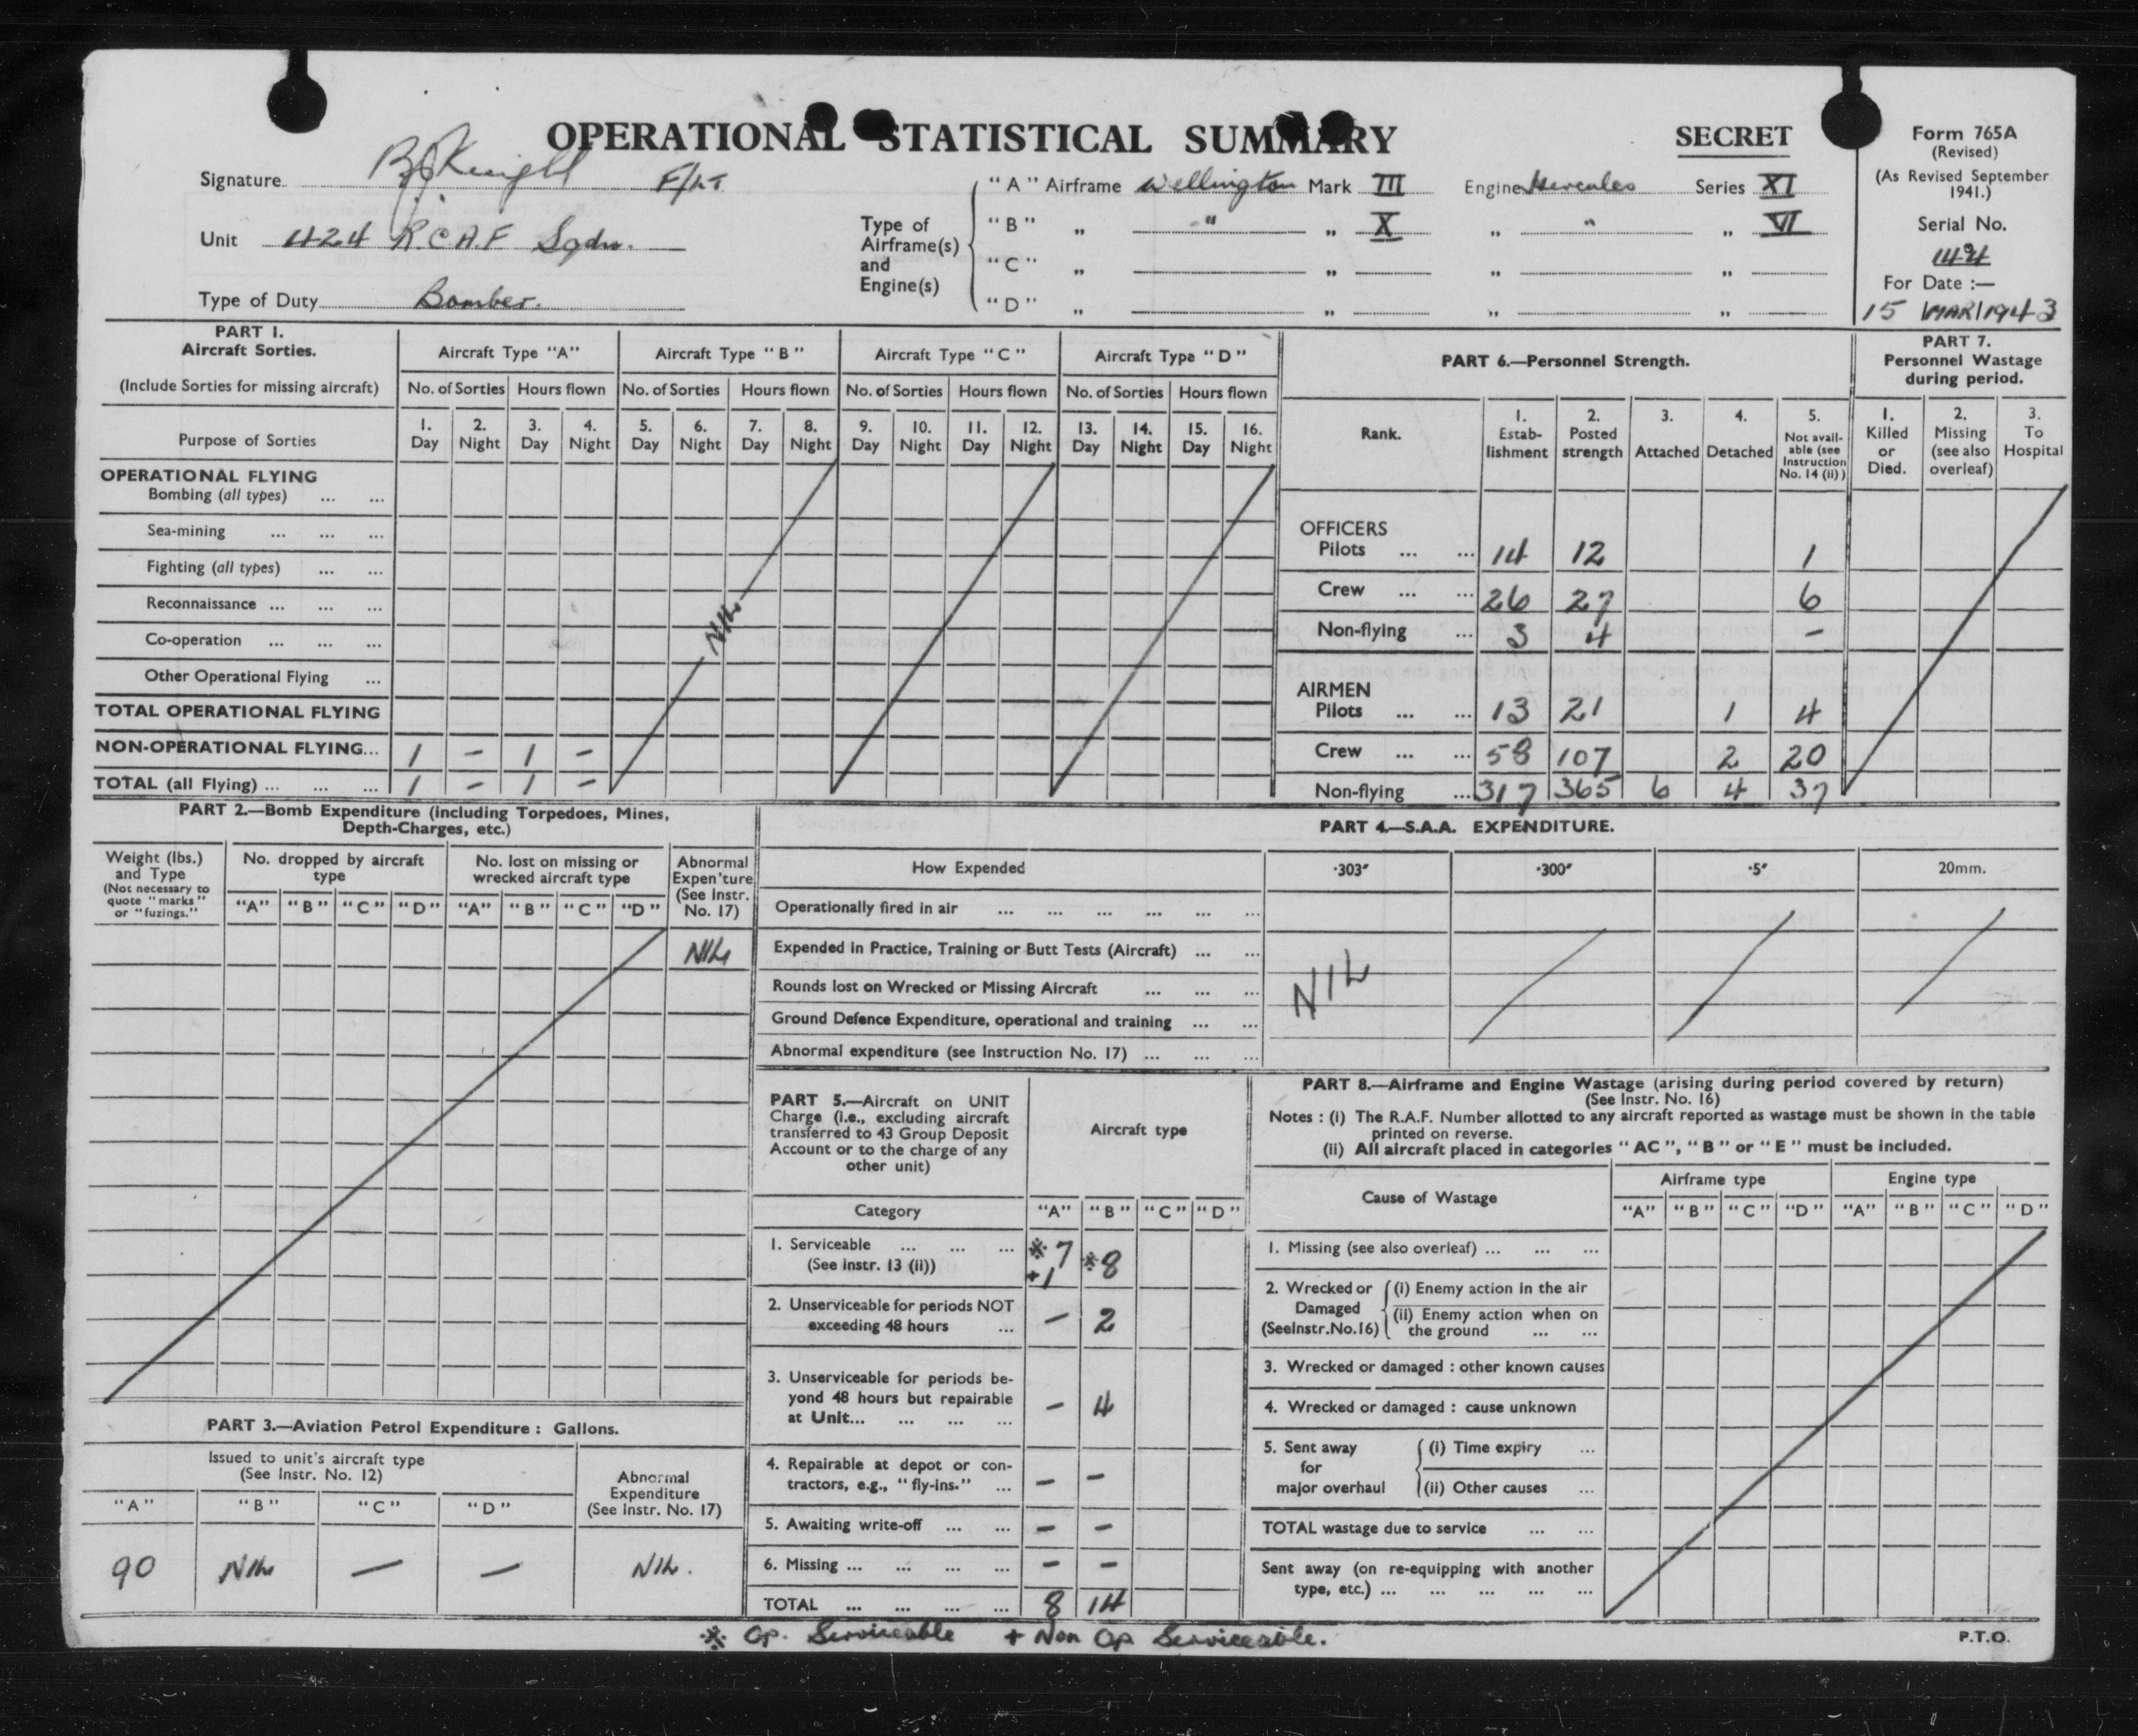 OPERATIONAL STATISTICAL SUMMARY
SECRET
Form 765A
(Revised)
(As Revised September
1941.)
Serial No.
For Date :—
15 MAR 1943
Signature Knight F/LT
Unit 424 R C A F Sqdn.
Type of Duty Bomber.
Type of
Airframe(s)
and
Engine(s)
"A" Airframe Wellington Mark III Engine Hercules Series XI
"B" „ " „ X „ " „ VI
"C" „ „ „ „
"D" „ „ „ „
PART 1.
Aircraft Sorties.
(Include Sorties for missing aircraft)
Purpose of Sorties
Aircraft Type "A" Aircraft Type "B" Aircraft Type "C" Aircraft Type "D"
No. of Sorties Hours flown No. of Sorties Hours flown No. of Sorties Hours flown No. of Sorties Hours flown
1. 2. 3. 4. 5. 6. 7. 8. 9. 10. 11. 12. 13. 14. 15. 16.
Day Night Day Night Day Night Day Night Day Night Day Night Day Night Day Night
OPERATIONAL FLYING
Bombing (all types) ... ...
Sea-mining ... ... ...
Fighting (all types) ... ...
Reconnaissance ... ... ...
Co-operation ... ... ...
Other Operational Flying ...
NIL
TOTAL OPERATIONAL FLYING
NON-OPERATIONAL FLYING... 1 - 1 -
TOTAL (all Flying) ... ... ... 1 - 1 -
PART 6.—Personnel Strength.
Rank.
1. Estab-lishment
2. Posted strength
3. Attached
4. Detached
5. Not avail-able (see Instruction No. 14 (ii))
OFFICERS
Pilots ... ... 14 12 1
Crew ... ... 26 27 6
Non-flying ... 3 4 -
AIRMEN
Pilots ... ... 13 21 1 4
Crew ... ... 58 107 2 20
Non-flying ... 317 365 6 4 37
PART 7.
Personnel Wastage
during period.
1. Killed or Died.
2. Missing (see also overleaf)
3. To Hospital
PART 2.—Bomb Expenditure (including Torpedoes, Mines,
Depth-Charges, etc.)
Weight (lbs.)
and Type
(Not necessary to
quote "marks"
or "fuzings."
No. dropped by aircraft
type
No. lost on missing or
wrecked aircraft type
Abnormal
Expen'ture
(See Instr.
No. 17)
"A" "B" "C" "D" "A" "B" "C" "D"
NIL
PART 3.—Aviation Petrol Expenditure : Gallons.
Issued to unit's aircraft type
(See Instr. No. 12)
Abnormal
Expenditure
(See Instr. No. 17)
"A" "B" "C" "D"
90 NIL — — NIL.
PART 4.—S.A.A. EXPENDITURE.
How Expended ·303″ ·300″ ·5″ 20mm.
Operationally fired in air ... ... ... ... ... ...
Expended in Practice, Training or Butt Tests (Aircraft) ... ...
Rounds lost on Wrecked or Missing Aircraft ... ... ...
Ground Defence Expenditure, operational and training ... ...
Abnormal expenditure (see Instruction No. 17) ... ... ...
NIL
PART 5.—Aircraft on UNIT
Charge (i.e., excluding aircraft
transferred to 43 Group Deposit
Account or to the charge of any
other unit)
Aircraft type
Category "A" "B" "C" "D"
1. Serviceable ... ... ... ※ 7 ※ 8
(See Instr. 13 (ii)) + 1
2. Unserviceable for periods NOT
exceeding 48 hours ... — 2
3. Unserviceable for periods be-
yond 48 hours but repairable
at Unit... ... ... ... — 4
4. Repairable at depot or con-
tractors, e.g., "fly-ins." ... — —
5. Awaiting write-off ... ... — —
6. Missing ... ... ... ... — —
TOTAL ... ... ... ... 8 14
PART 8.—Airframe and Engine Wastage (arising during period covered by return)
(See Instr. No. 16)
Notes : (i) The R.A.F. Number allotted to any aircraft reported as wastage must be shown in the table
printed on reverse.
(ii) All aircraft placed in categories "AC", "B" or "E" must be included.
Cause of Wastage
Airframe type Engine type
"A" "B" "C" "D" "A" "B" "C" "D"
1. Missing (see also overleaf) ... ... ...
2. Wrecked or Damaged (See Instr. No. 16)
(i) Enemy action in the air
(ii) Enemy action when on
the ground ... ...
3. Wrecked or damaged : other known causes
4. Wrecked or damaged : cause unknown
5. Sent away for major overhaul
(i) Time expiry ...
(ii) Other causes ...
TOTAL wastage due to service ... ...
Sent away (on re-equipping with another
type, etc.) ... ... ... ... ...
※ Op. Serviceable + Non Op Serviceable.
P.T.O.